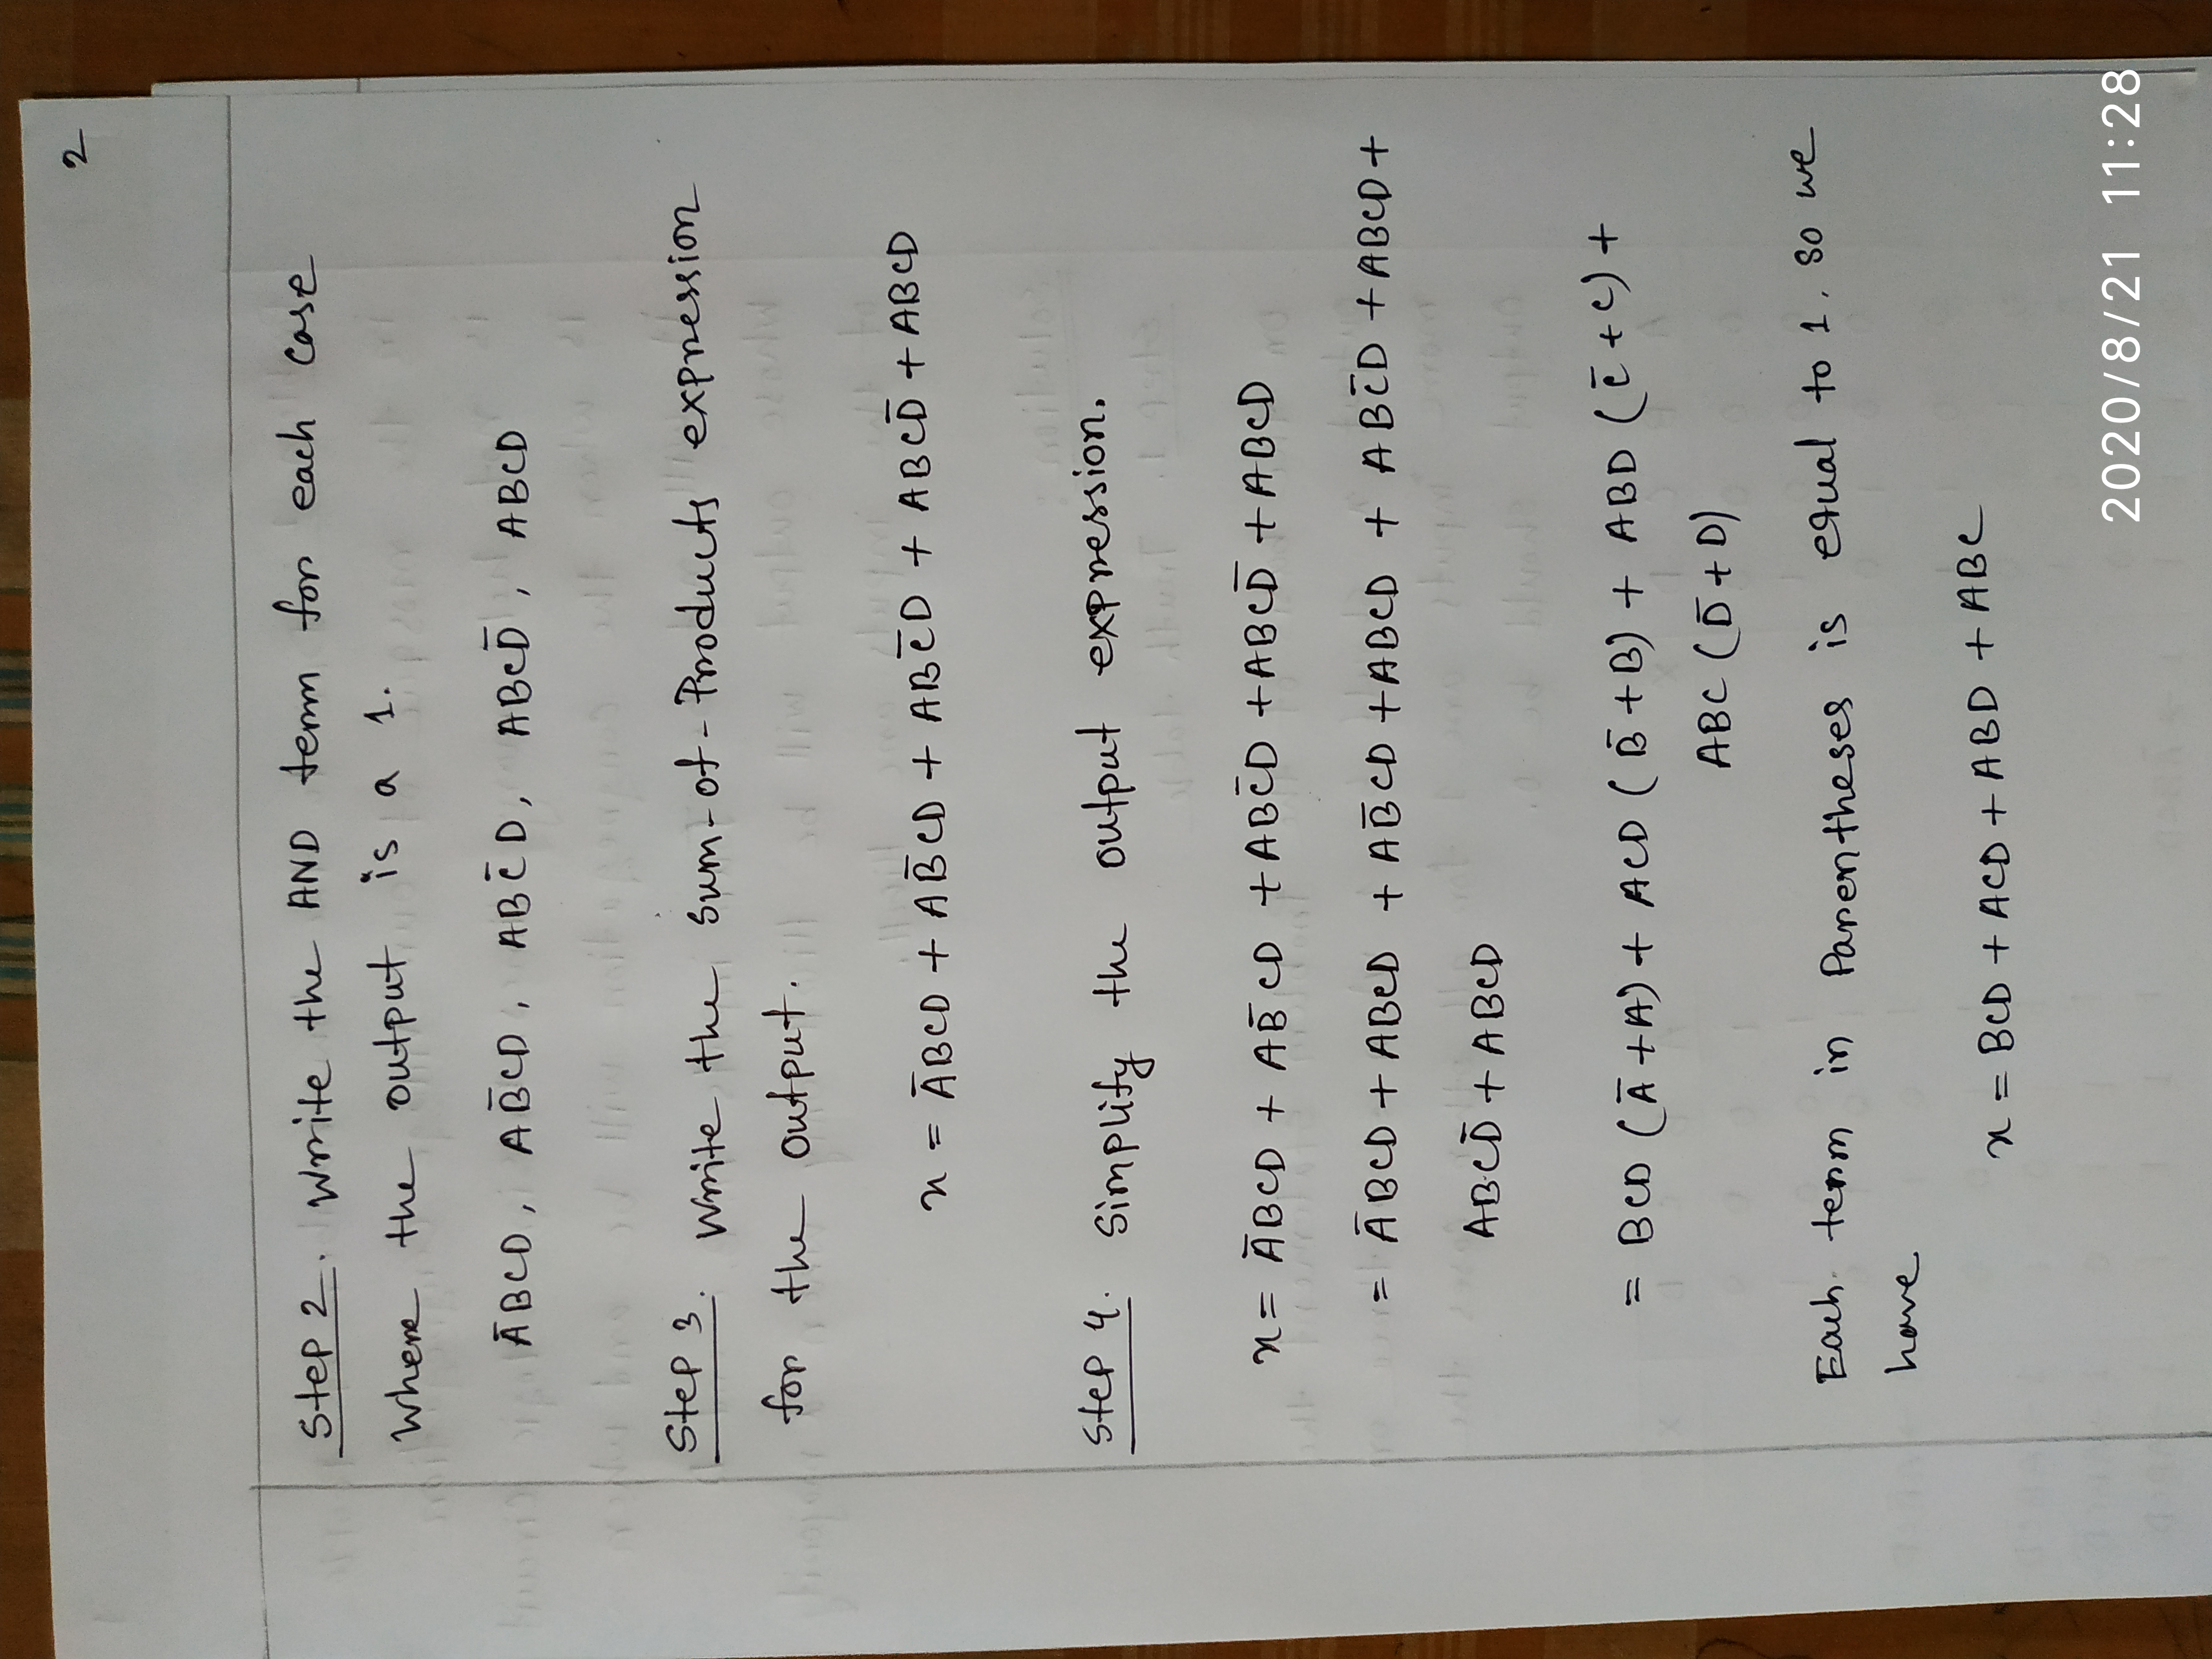 2
Step 2. Write the AND term for each case
Where the output is a 1.
A̅BCD, AB̅CD, ABC̅D, ABCD̅, ABCD
Step 3. Write the sum-of-Products expression
for the output.
x = A̅BCD + AB̅CD + ABC̅D + ABCD̅ + ABCD
Step 4. Simplify the output expression.
x = A̅BCD + AB̅CD + ABC̅D + ABCD̅ + ABCD
= A̅BCD + ABCD + AB̅CD + ABCD + ABC̅D + ABCD +
ABCD̅ + ABCD
= BCD (A̅ + A) + ACD (B̅ + B) + ABD (C̅ + C) +
ABC (D̅ + D)
Each term in Parentheses is equal to 1, so we
have
x = BCD + ACD + ABD + ABC
2020/8/21 11:28